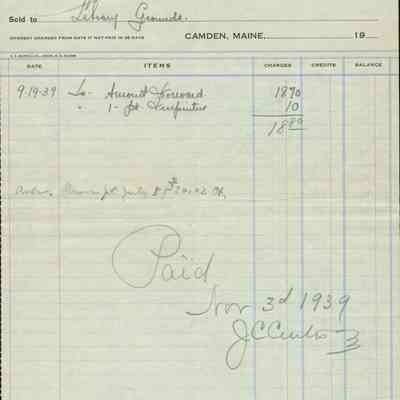 Sold to Library Grounds.
INTEREST CHARGED FROM DATE IF NOT PAID IN 30 DAYS
CAMDEN, MAINE, 19
DATE ITEMS CHARGES CREDITS BALANCE
9-19-39 To- Amount Forward 18 70
" 1- pt. Turpentine 10
18 80
Paid
Nov 3d 1939
J C Curtis